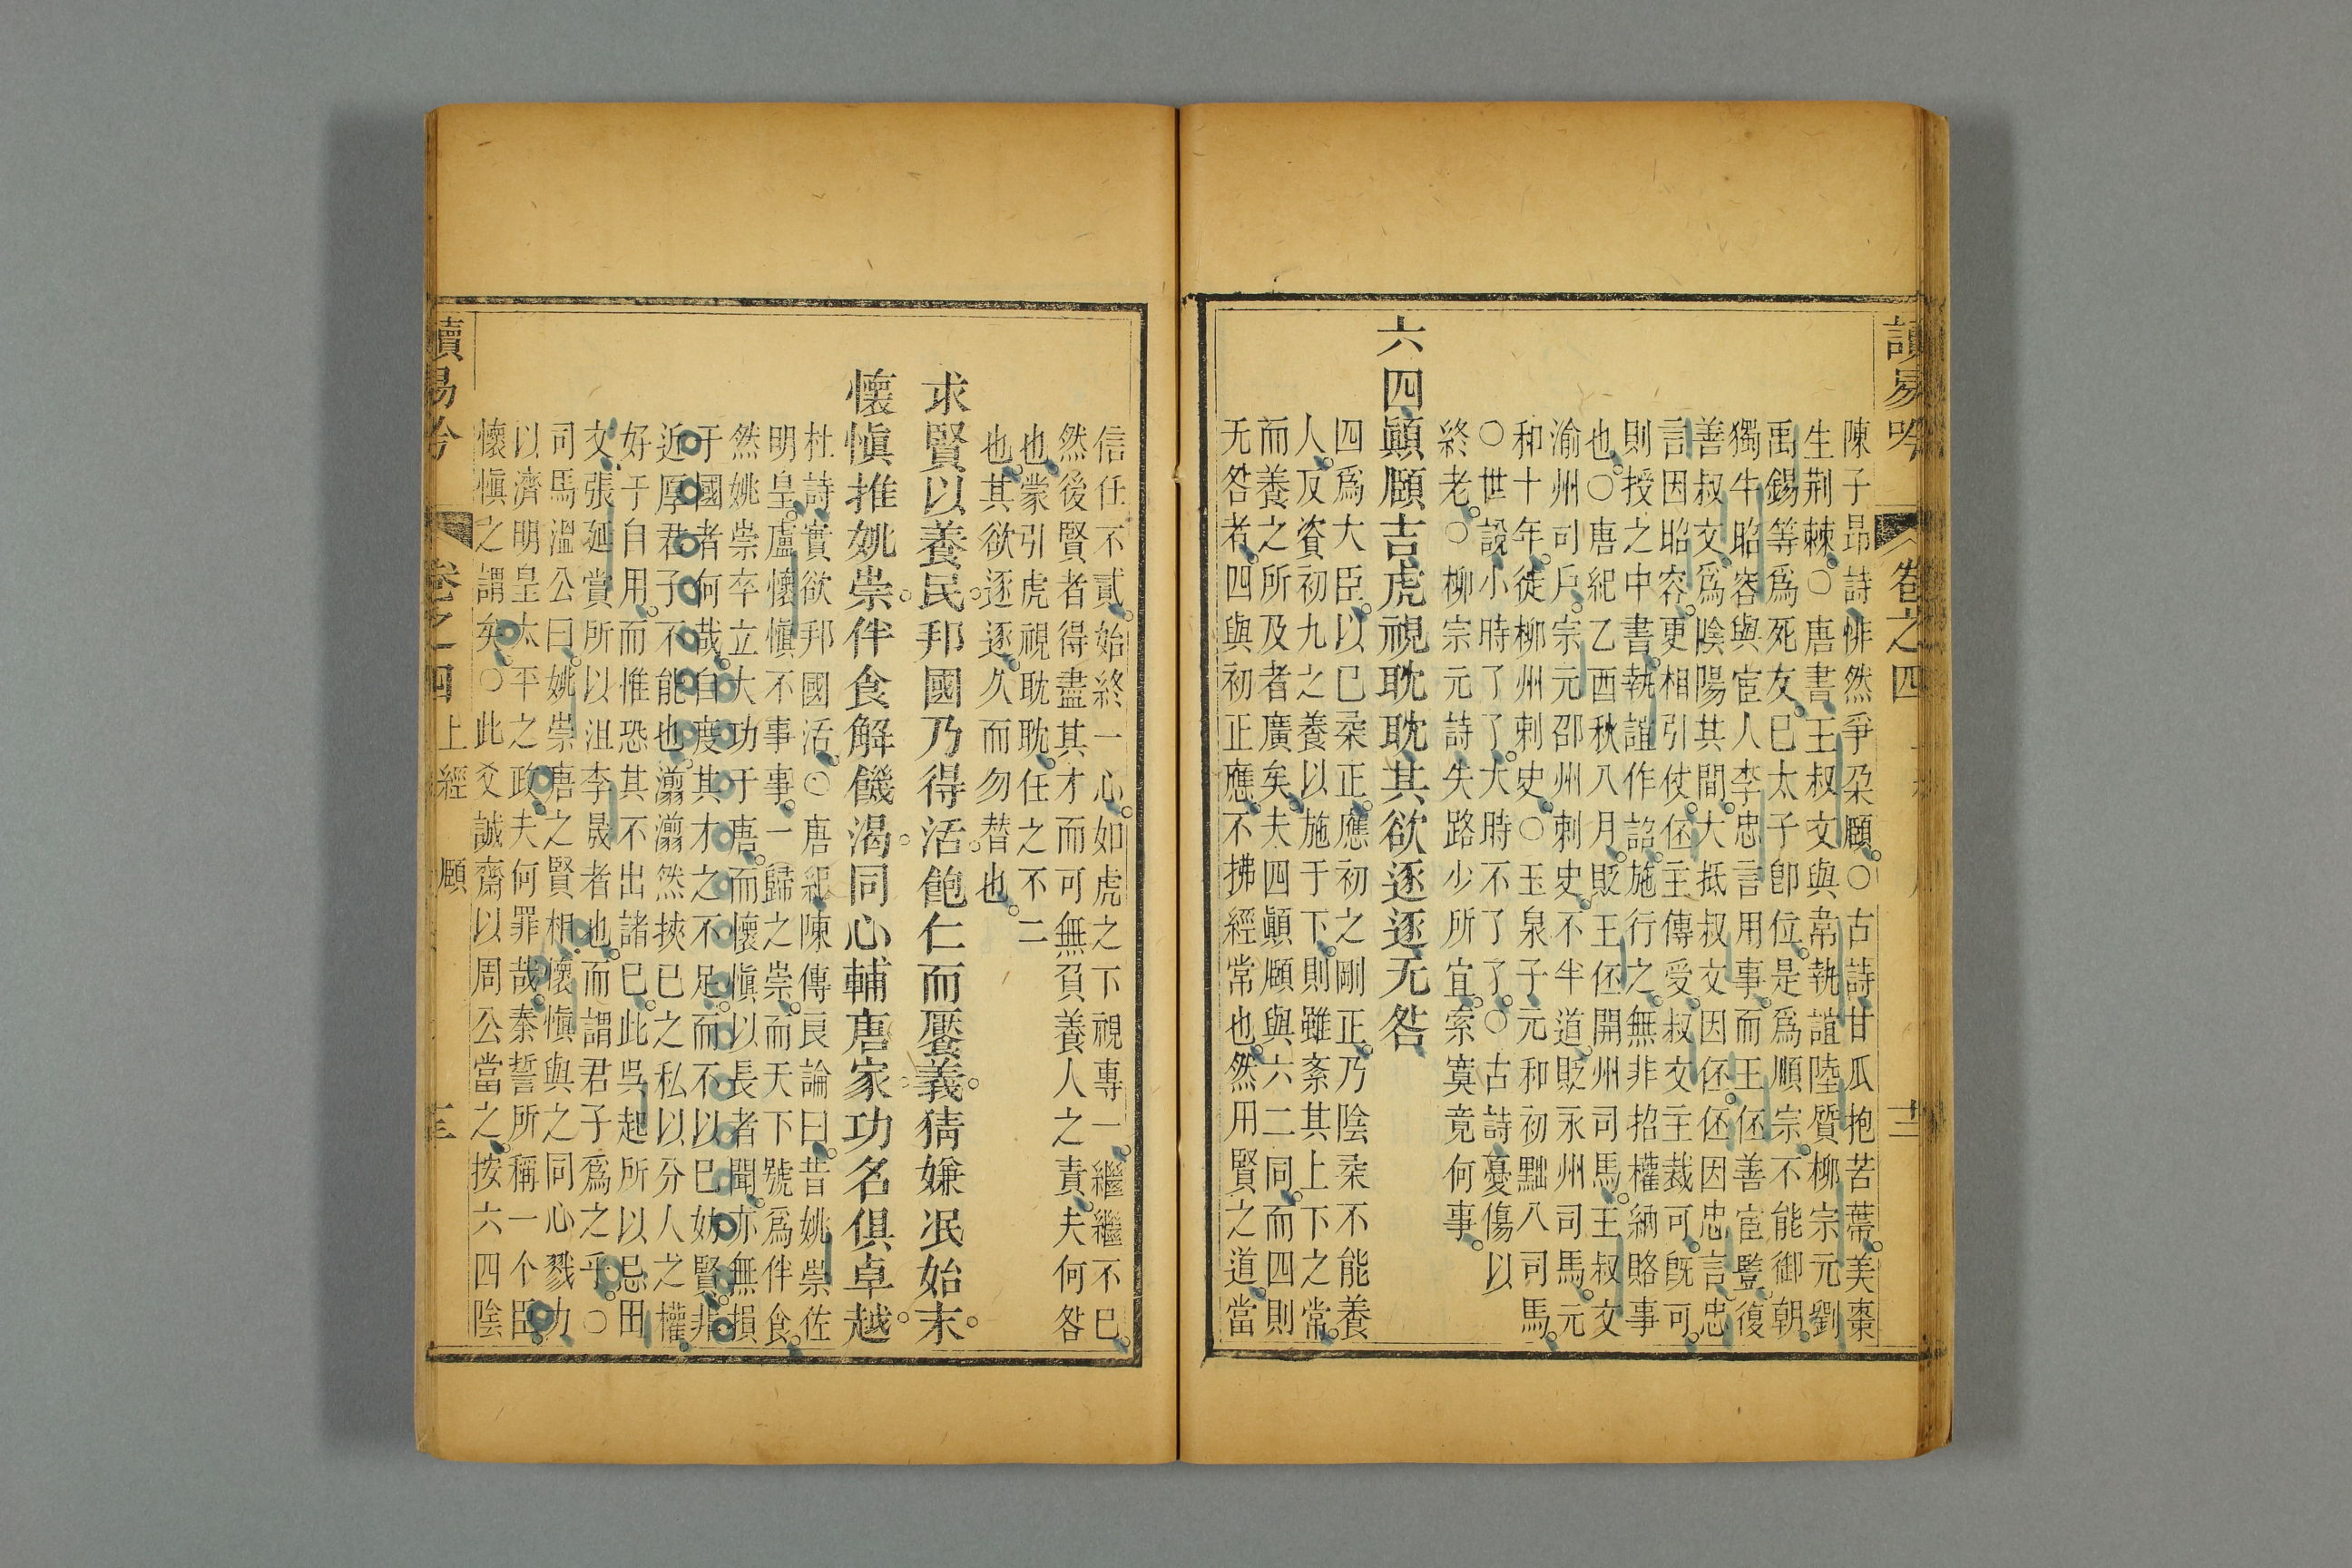 讀易吟
卷之四
陳子昂詩悱然爭朶頤○古詩甘瓜抱苦蔕美棗
生荆棘○唐書王叔文與韋執誼陸質柳宗元劉
禹錫等爲死友巳太子卽位是爲順宗不能御朝
獨牛昭容與宦人李忠言用事而王伾善宦豎復
善叔文爲陰陽其間大抵叔文因伾伾因忠言忠
言因昭容更相引仗伾主傳受叔文主裁可旣可
則授之中書執誼作詔施行之無非招權納賂事
也○唐紀乙酉秋八月貶王伾開州司馬王叔文
渝州司戶宗元邵州刺史不半道貶永州司馬元
和十年徒柳州刺史○玉泉子元和初黜八司馬
○世說小時了了大時不了了○古詩憂傷以
終老○柳宗元詩失路少所宜索寞竟何事
六四顚頤吉虎視耽耽其欲逐逐无咎
四爲大臣以巳柔正應初之剛正乃陰柔不能養
人反資初九之養以施于下則雖紊其上下之常
而養之所及者廣矣夫四顚頤與六二同而四則
无咎者四與初正應不拂經常也然用賢之道當
信任不貳始終一心如虎之下視專一繼繼不巳
然後賢者得盡其才而可無負養人之責夫何咎
也蒙引虎視耽耽任之不二
也其欲逐逐久而勿替也
求賢以養民邦國乃得活飽仁而饜義猜嫌泯始末
懷愼推姚崇伴食解饑渴同心輔唐家功名俱卓越
杜詩實欲邦國活○唐紀陳傅良論曰昔姚崇佐
明皇盧懷愼不事事一歸之崇而天下號爲伴食
然姚崇卒立大功于唐而懷愼以長者聞亦無損
于國者何哉自度其才之不足而不以巳妨賢非
近厚君子不能也瀏瀏然挾巳之私以分人之權
好于自用而惟恐其不出諸巳此吳起所以忌田
文張延賞所以沮李晟者也而謂君子爲之乎○
司馬溫公曰姚崇唐之賢相懷愼與之同心戮力
以濟明皇太平之政夫何罪哉秦誓所稱一个臣
懷愼之謂矣○此爻誠齋以周公當之按六四陰
讀易吟
卷之四
上經
頤